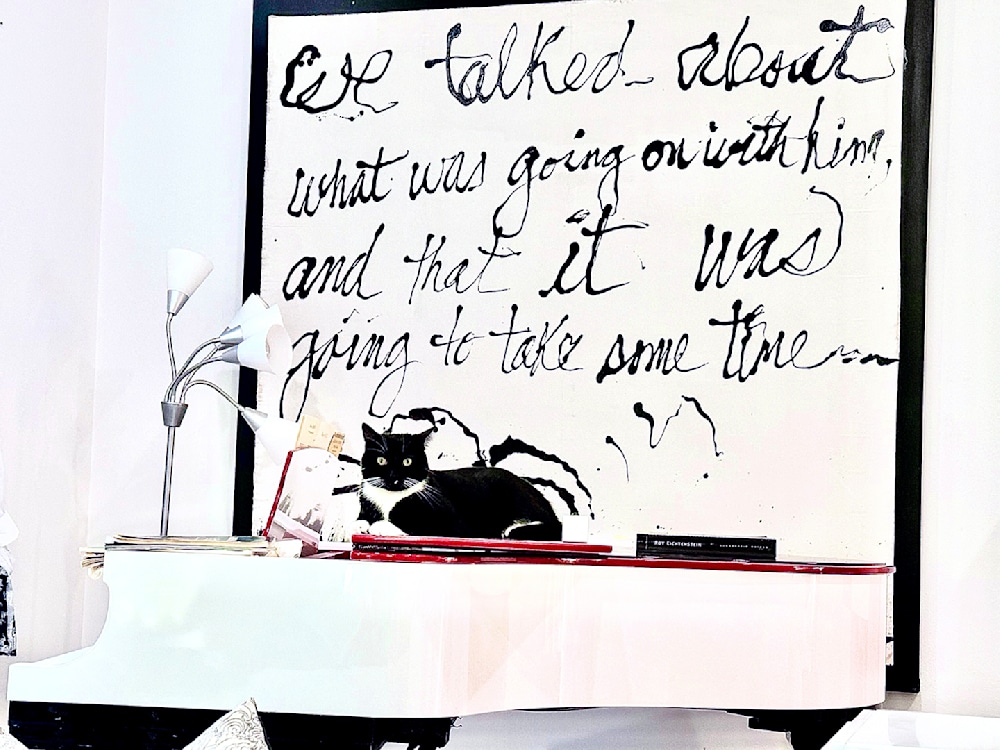 talked about
what was going on with him,
and that it was
going to take some time
ROY LICHTENSTEIN